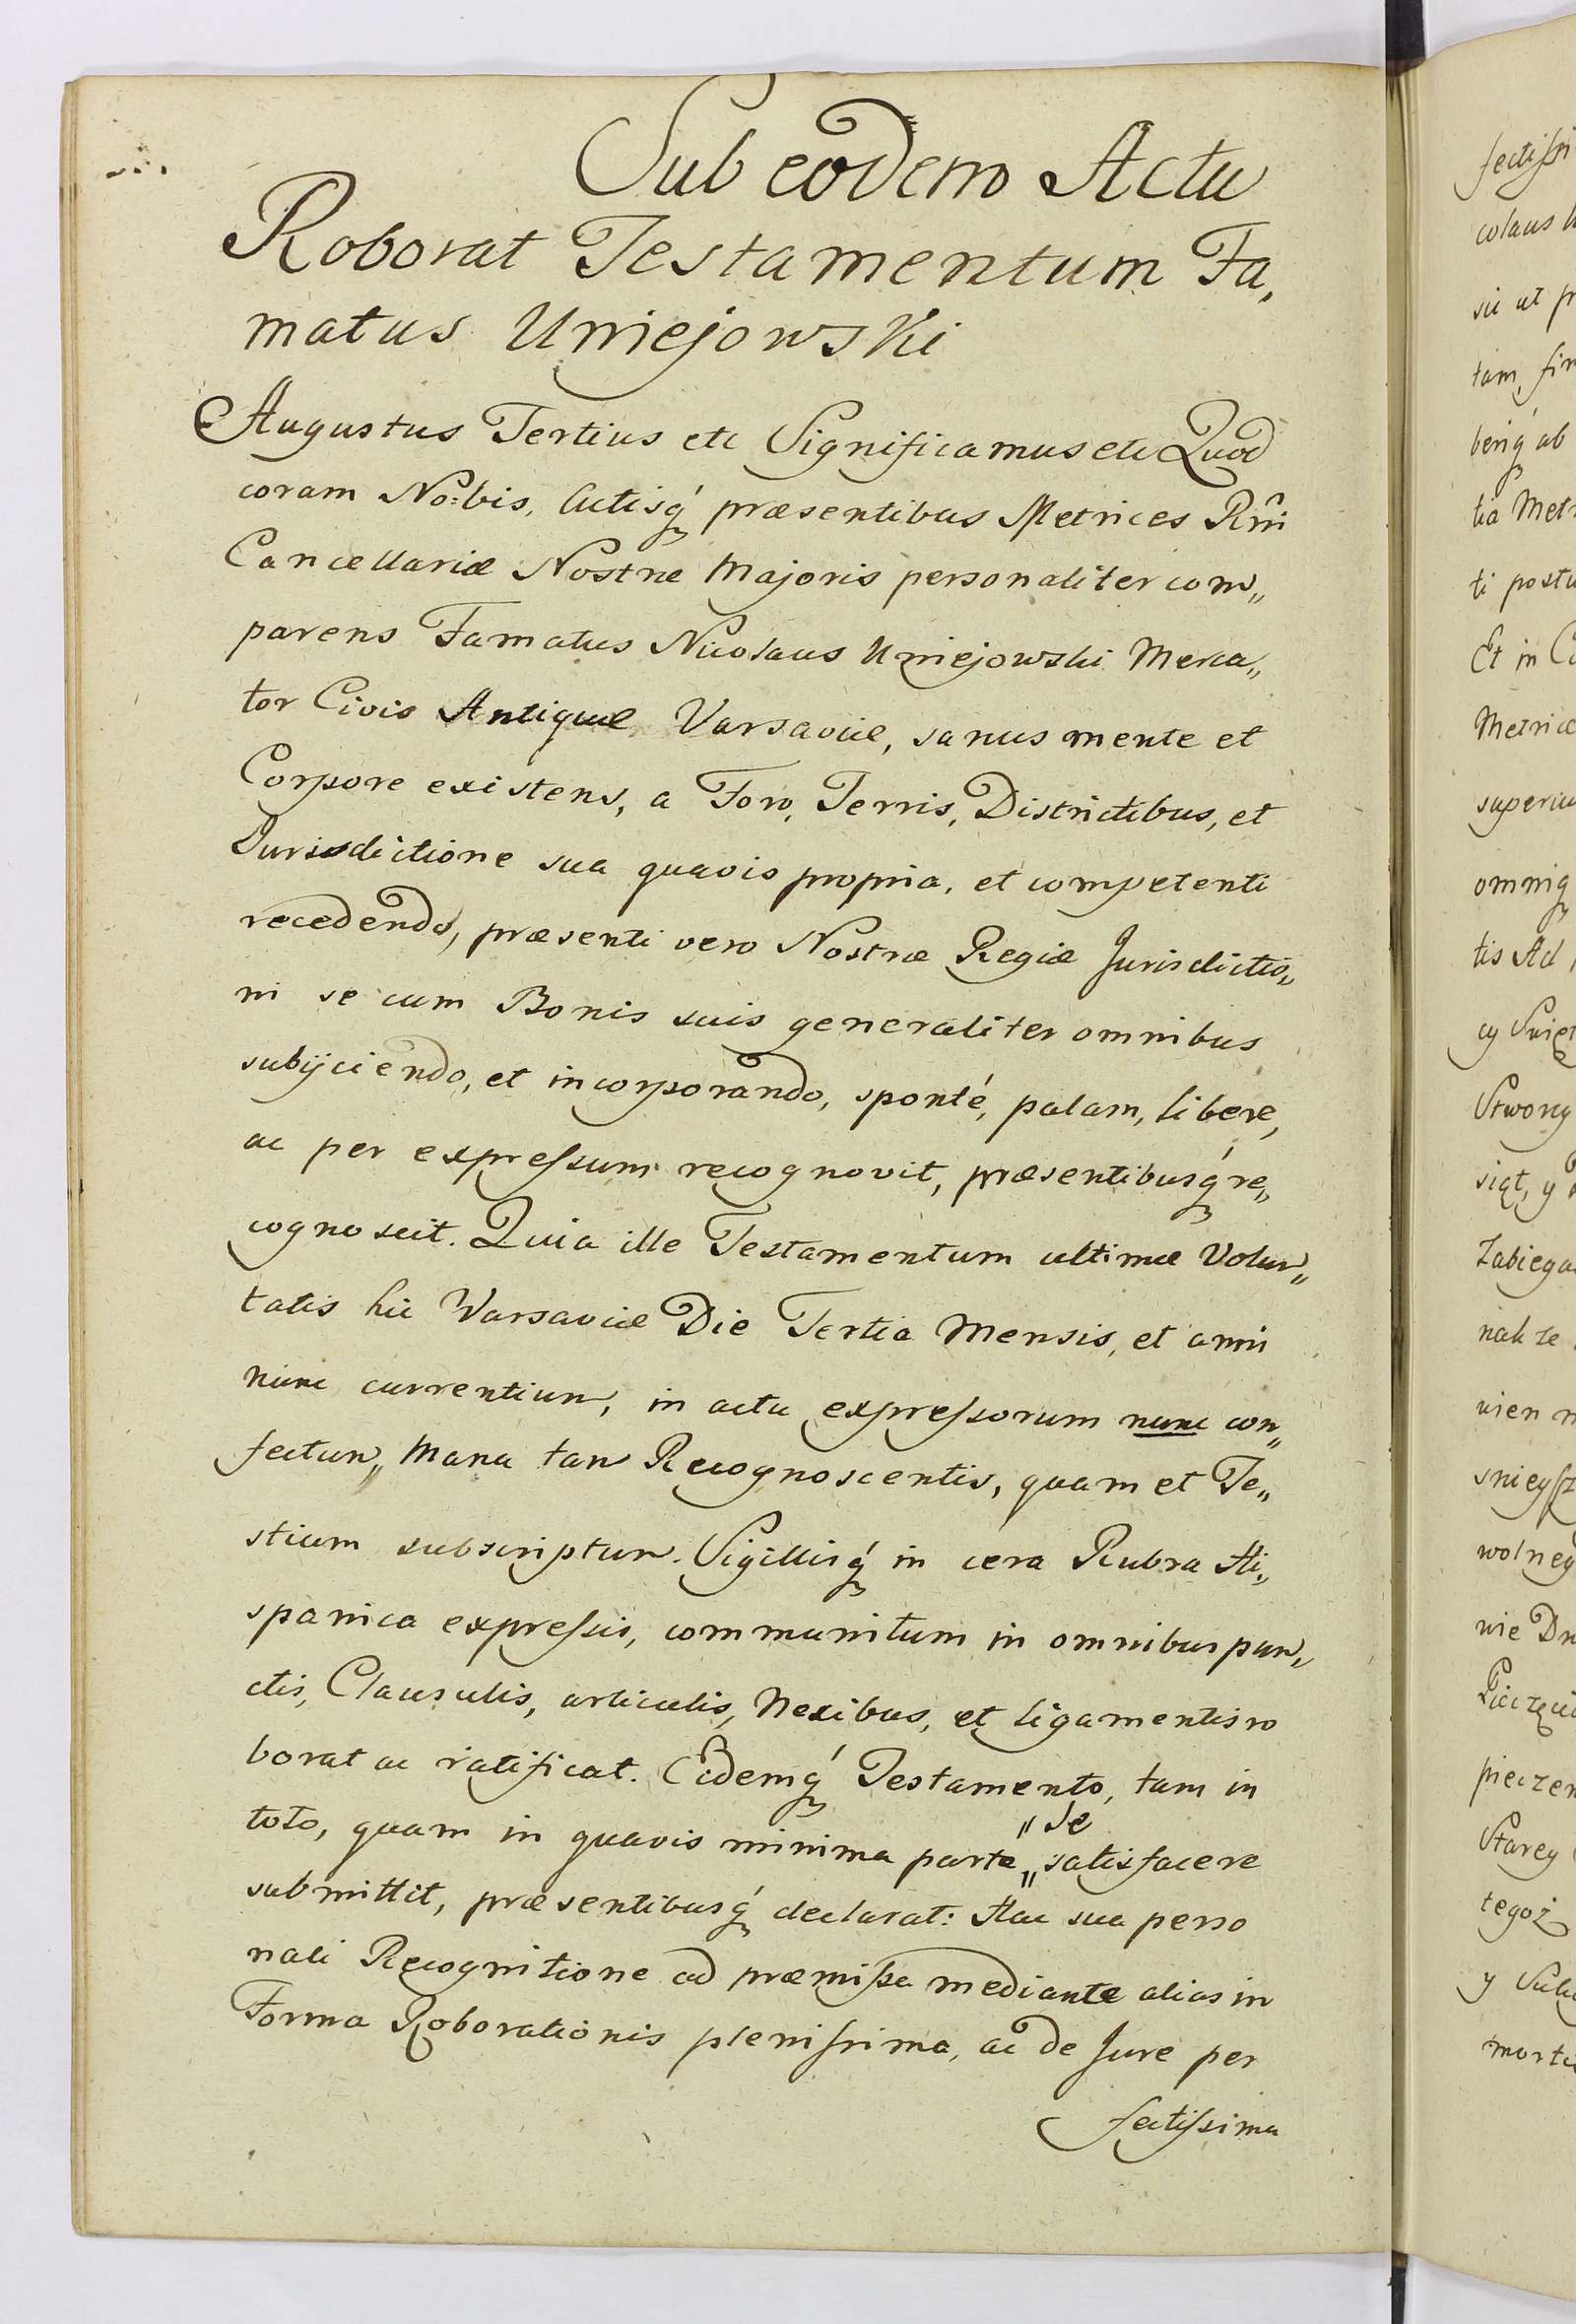 Sub eodem Actu
Roborat Testamentum Fa,
matus Uniejowski
Augustus Tertius etc Significamus etc Quod
coram No:bis, Actisq́ præsentibus Metrices Rñi
Cancellariæ Nostræ Majoris personaliter com„
parens Famatus Nicolaus Uniejowski Merca„
tor Civis Antiquæ Varsaviæ, sanus mente et
Corpore existens, a Foro, Terris, Districtibus, et
Jurisdictione sua quavis propria, et competenti
recedendo, præsenti vero Nostræ Regiæ Jurisdictio„
ni se cum Bonis suis generaliter omnibus
subijciendo, et incorporando, sponté, palam, libere,
ac per expressum recognovit, præsentibusq́ re„
cognoscit. Quia ille Testamentum ultimæ Volun„
tatis hic Varsaviæ Die Tertia Mensis, et anni
nunc currentium, in actu expressorum nunc con„
fectum„ Manu tam Recognoscentis, quam et Te„
stium subscriptum. Sigillisq́ in cera Rubra Hi„
spanica expressis, communitum in omnibus pun„
ctis, Clausulis, articulis, Nexibus, et ligamentis ro
borat ac ratificat. Eidemq́ Testamento, tam in
toto, quam in quavis minima parte „ satisfacere
„ se
submittit, præsentibusq́ declarat: Hac sua perso
nali Recognitione ad præmissa mediante alias in
Forma Roborationis plenissima, ac de Jure per
fectissima
fectissi
colaus U
sic ut pr
tam, fir
beriq́ ab
tia Metr
ti postu
Et in C
Metricæ
superiu
omniq
tis Ad
cy Święt
Stworzy
siąt, y
Zabiega
nak ze
wien n
snieysz
wolney
nie Dn
pieczen
Starey
tegoż
y
morte